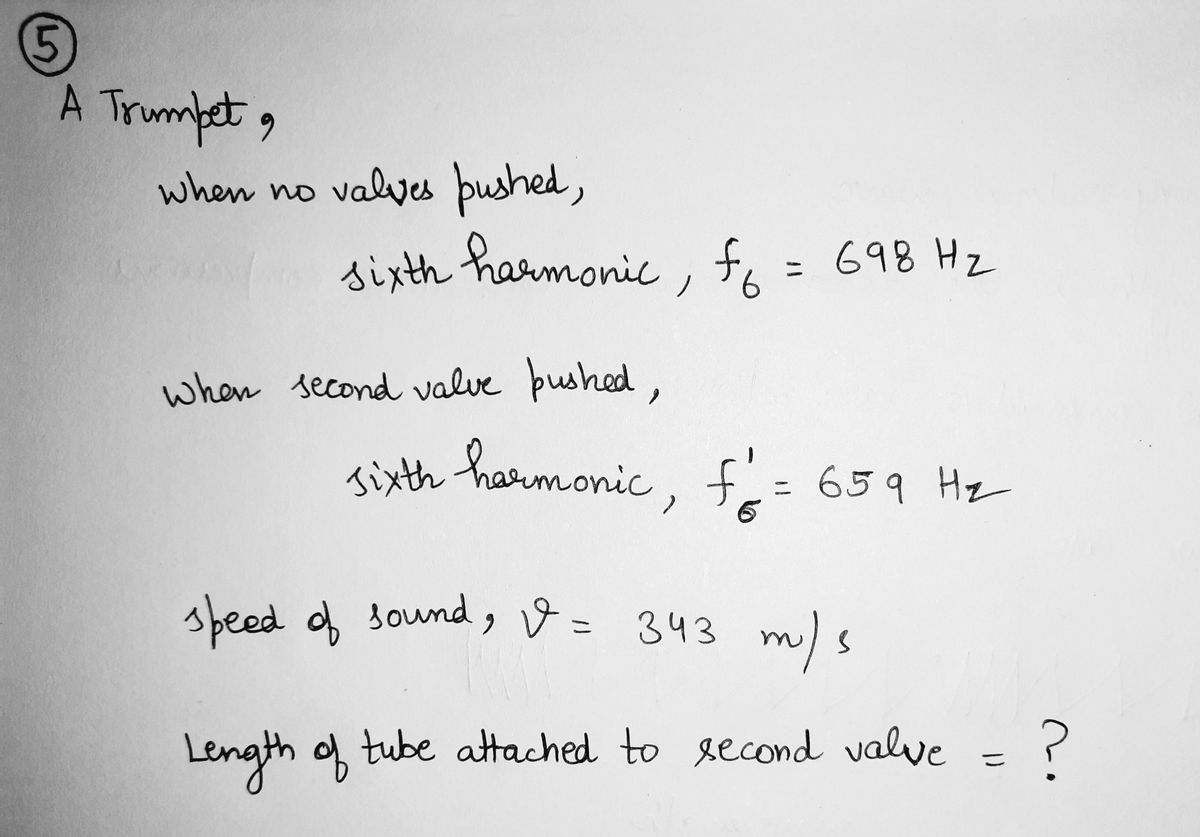 5
A Trumpet,
when no valves pushed,
sixth harmonic, f₆ = 698 Hz
when second valve pushed,
sixth harmonic, f'₆ = 659 Hz
speed of sound, v = 343 m/s
Length of tube attached to second valve = ?